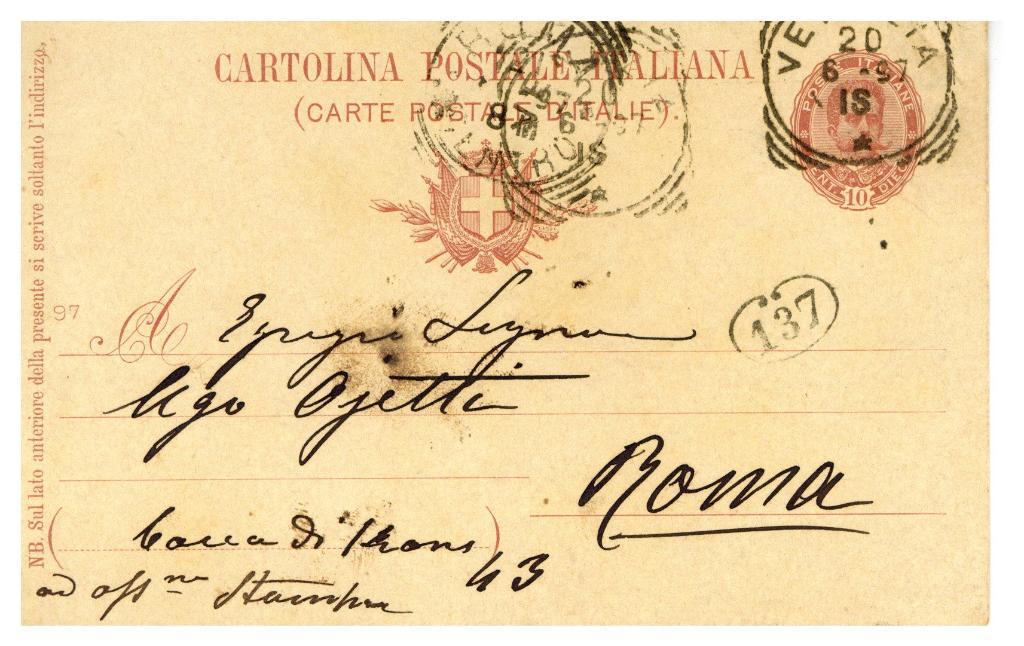 CARTOLINA POSTALE ITALIANA
(CARTE POSTALE D'ITALIE).
VENEZIA
20
6-97
1S
POSTE ITALIANE
CENT. 10 DIECI
ROMA
8
20
6
1S
NB. Sul lato anteriore della presente si scrive soltanto l'indirizzo.
97
137
A Egregio Signor
Ugo Ojetti
Roma
Bocca di
43
Stampa